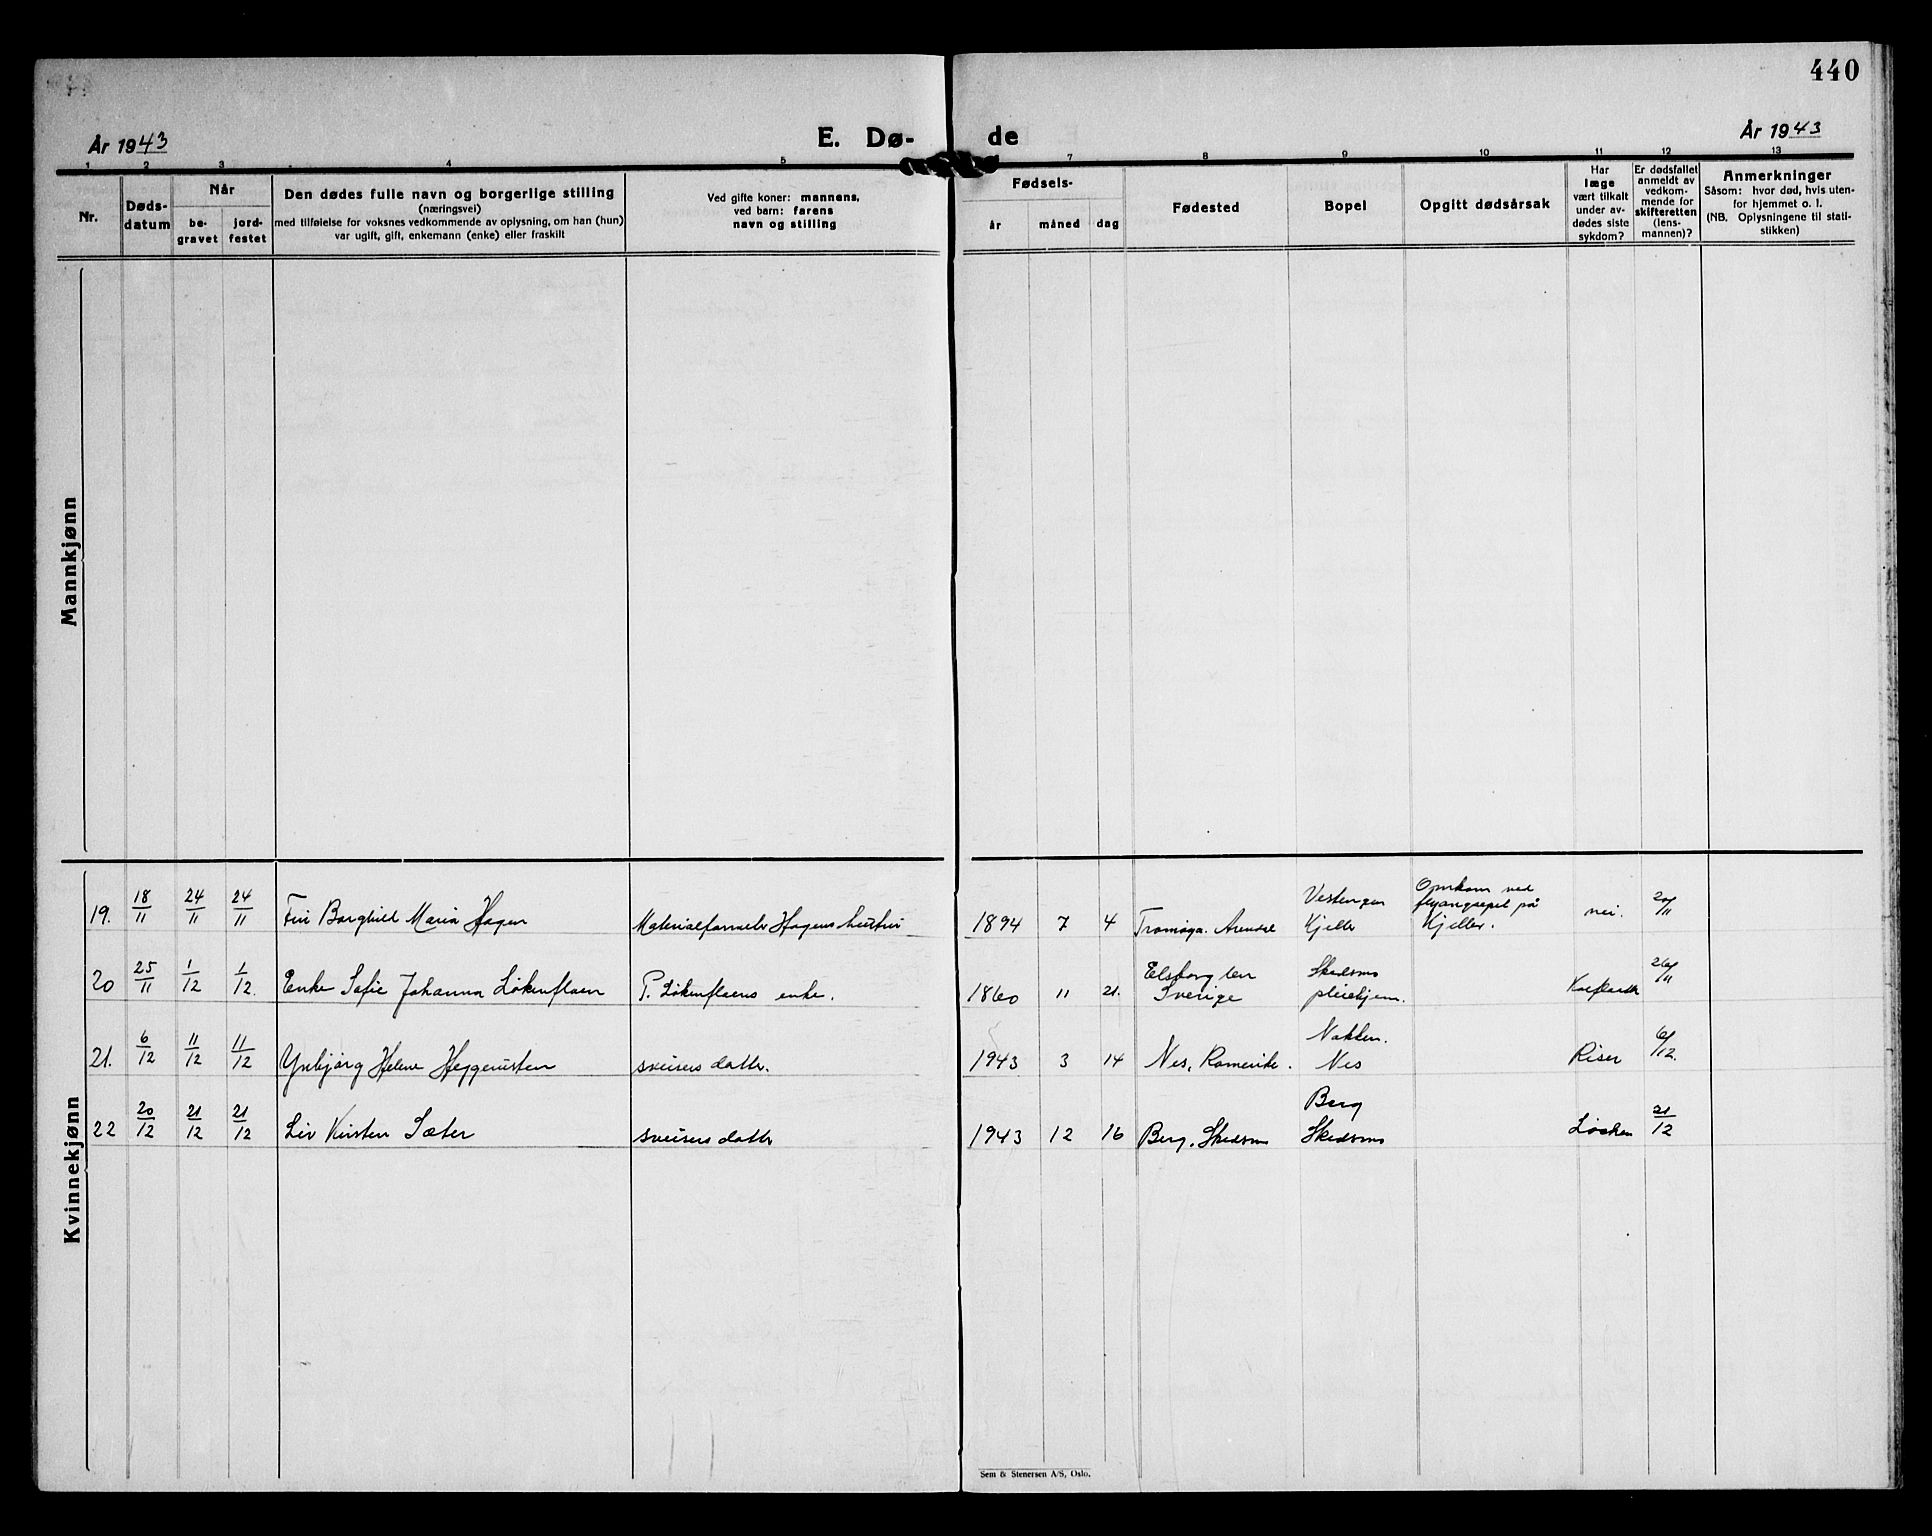 440
År 1943
E. Dø-
de
År 1943
1 2 3 4 5 7 8 9 10 11 12 13
Nr.
Døds-
datum
Når
be-
gravet
jord-
festet
Den dødes fulle navn og borgerlige stilling
(næringsvei)
med tilføielse for voksnes vedkommende av oplysning, om han (hun)
var ugift, gift, enkemann (enke) eller fraskilt
Ved gifte koner: mannens,
ved barn: farens
navn og stilling
Fødsels-
år måned dag
Fødested
Bopel
Opgitt dødsårsak
Har
læge
vært tilkalt
under av-
dødes siste
sykdom?
Er dødsfallet
anmeldt av
vedkom-
mende for
skifteretten
(lens-
mannen)?
Anmerkninger
Såsom: hvor død, hvis uten-
for hjemmet o. l.
(NB. Oplysningene til stati-
stikken)
Mannkjønn
Kvinnekjønn
19. 18/11 24/11 24/11 Fru Borghild Maria Hagen
Hagens hustru
1894 7 4 Tromøya. Arendal
Vestengen
Kjeller
Omkom ved
på
Kjeller.
nei. 20/11
20 25/11 1/12 1/12. Enke Sofie Johanna Løkenflaen
P. Løkenflaens enke.
1860 11 21.
Elsborg len
Sverige
Skedsmo
pleiehjem.
26/11
21. 6/12 11/12 11/12 Helene
sveisers datter.
1943 3 14 Nes, Romerike.
Nes
Riser 6/12.
22 20/12 21/12 21/12 Liv Kirsten Sæter
sveisers datter
1943 12 16 Berg, Skedsmo
Berg
Skedsmo
Løchen 21/12
Sem & Stenersen A/S, Oslo.